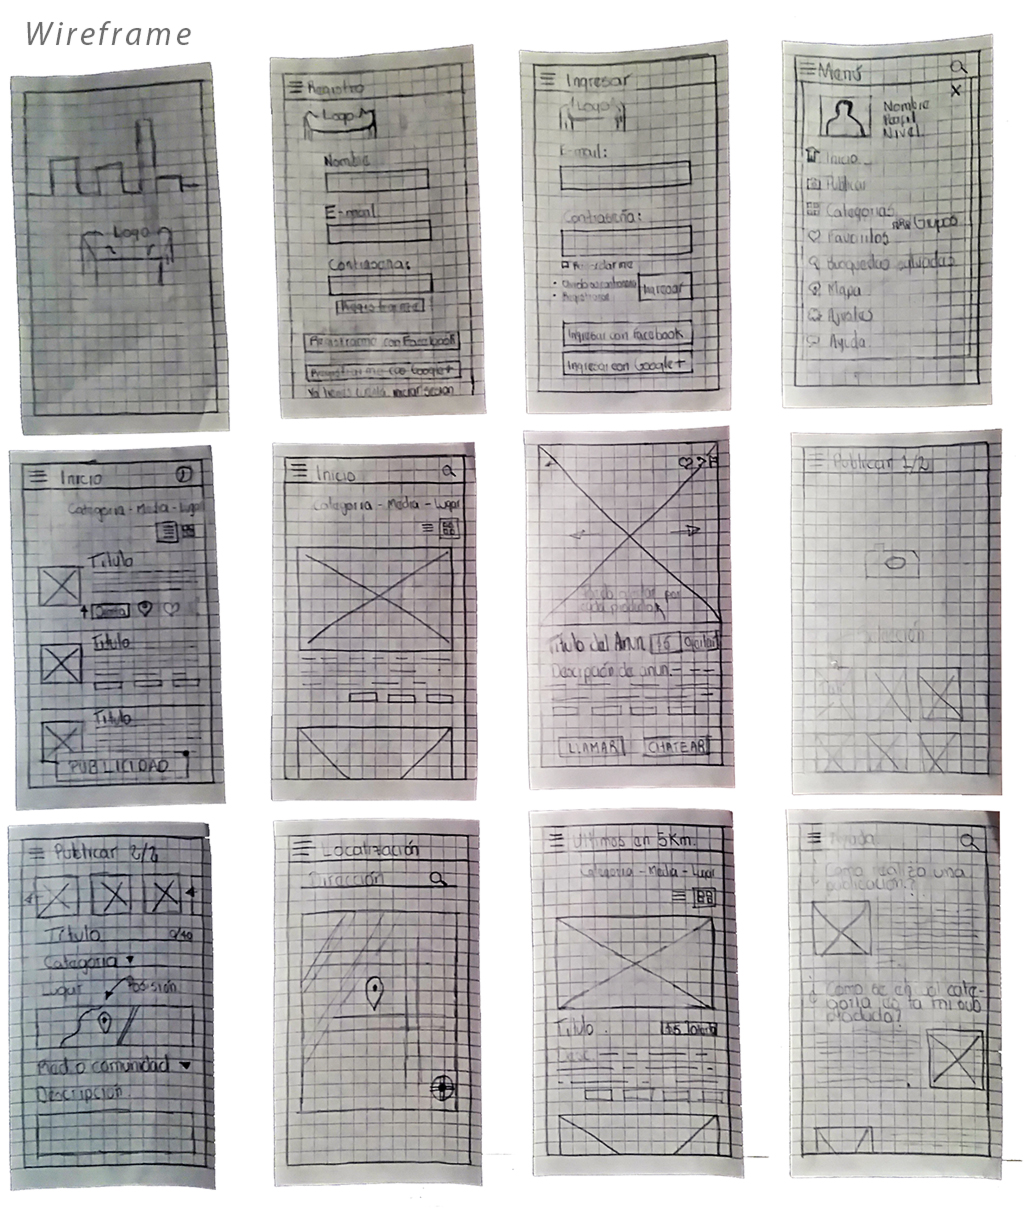 Wireframe
Logo
Registro
Logo
Nombre
E-mail
Contraseña:
Registrarme
Registrarme con Facebook
Registrarme con Google+
iniciar sesion
Ingresar
Logo
E-mail:
Contraseña:
Recordarme
Ingresar
Ingresar con Facebook
Ingresar con Google+
Menú
X
Nombre
Perfil
Nivel
Inicio
Publicar
Categorias
Grupos
Favoritos
Busquedas
Mapa
Ajustes
Ayuda
Inicio
Categoria - Media - Lugar
Titulo
Titulo
Titulo
PUBLICIDAD
Inicio
Categoria - Media - Lugar
por
cada producto
Titulo del Anun
Descripción de anun.
LLAMAR
CHATEAR
Publicar 1/2
Publicar 2/2
Título
0/40
Categoria
Lugar
Posisión
Red o comunidad
Descripción.
Localización
Dirección
Ultimos en 5Km.
Categoria - Media - Lugar
Titulo
Desc
Ayuda
Como realizo una
publicación?
¿Como se en
producto?